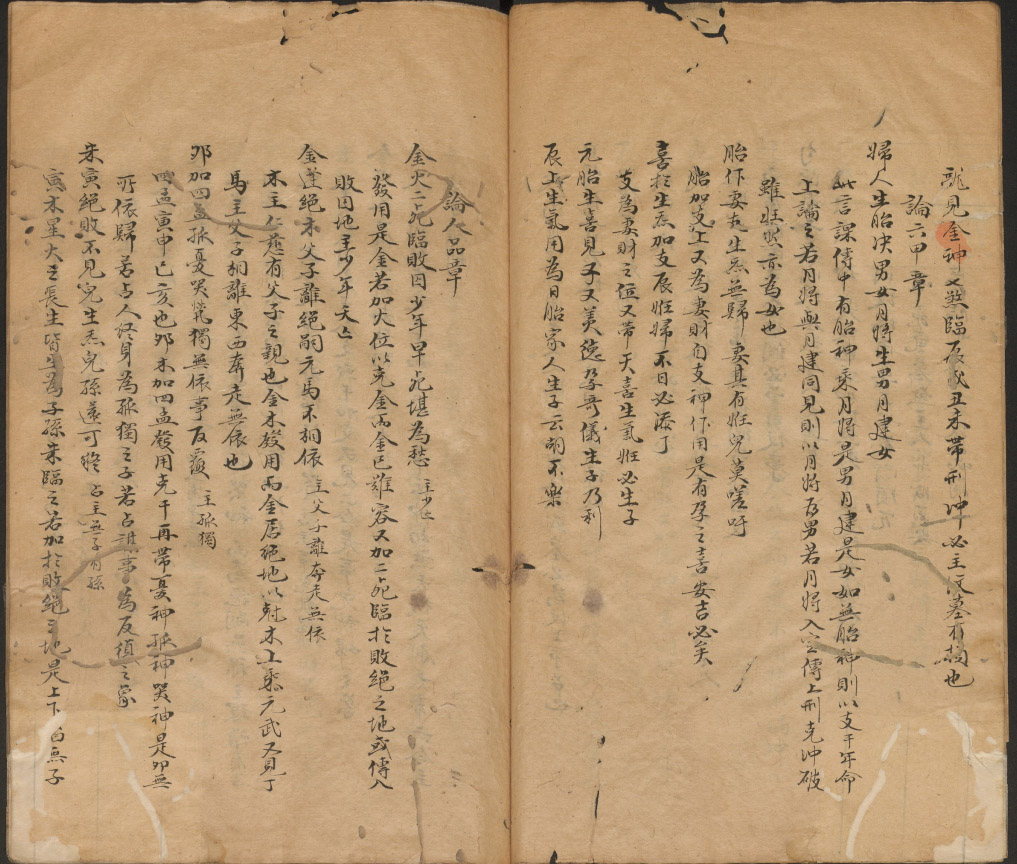 龍見金神又煞臨辰戌丑未帶刑冲必主坟墓有損也
論六甲章
婦人生胎决男女月將生男月建女
此言課傳中有胎神乘月將是男月建是女如無胎神則以支干年命
上論之若月將與月建同見則以月將为男若月將入空傳上刑克沖破
雖狀男亦為女也
胎作妻走生炁無歸 妻其有姙兒莫嗟吁
胎加支上又為妻財自支神作用是有孕之喜安吉必矣
喜扵生炁加支辰姙婦不日必添丁
支為妻財之位又帶天喜生氣姙必生子
元胎生喜見子又美德孕奇儀生子乃利
辰上生氣用為日胎家人生子云胡不樂
論人品章
金火二死臨敗因少年早死堪為愁 主少亡
發用是金若加火位以克金而金已難容又加二死臨扵敗絕之地或傳入
敗因地主少年夭亡
金逢絕木父子離絕嗣元馬不相依 主父子離奔走無依
木主仁慈有父子之親也金木發用而金居絕地以尅木上乘元武又見丁
馬主父子相離東西奔走無依也
卯加四孟孤憂哭惸獨無依事反覆 主孤獨
四孟寅申巳亥也卯木加四孟發用克干再帶憂神孤神哭神是卯無
所依歸若占人終身為孤獨之子若占謀事為反復之象
朱寅絕敗不見兒生炁兒孫還可終 占主無子有孫
寅木星大主長生皆生為子孫朱臨之若加扵敗絕之地是上下白無子